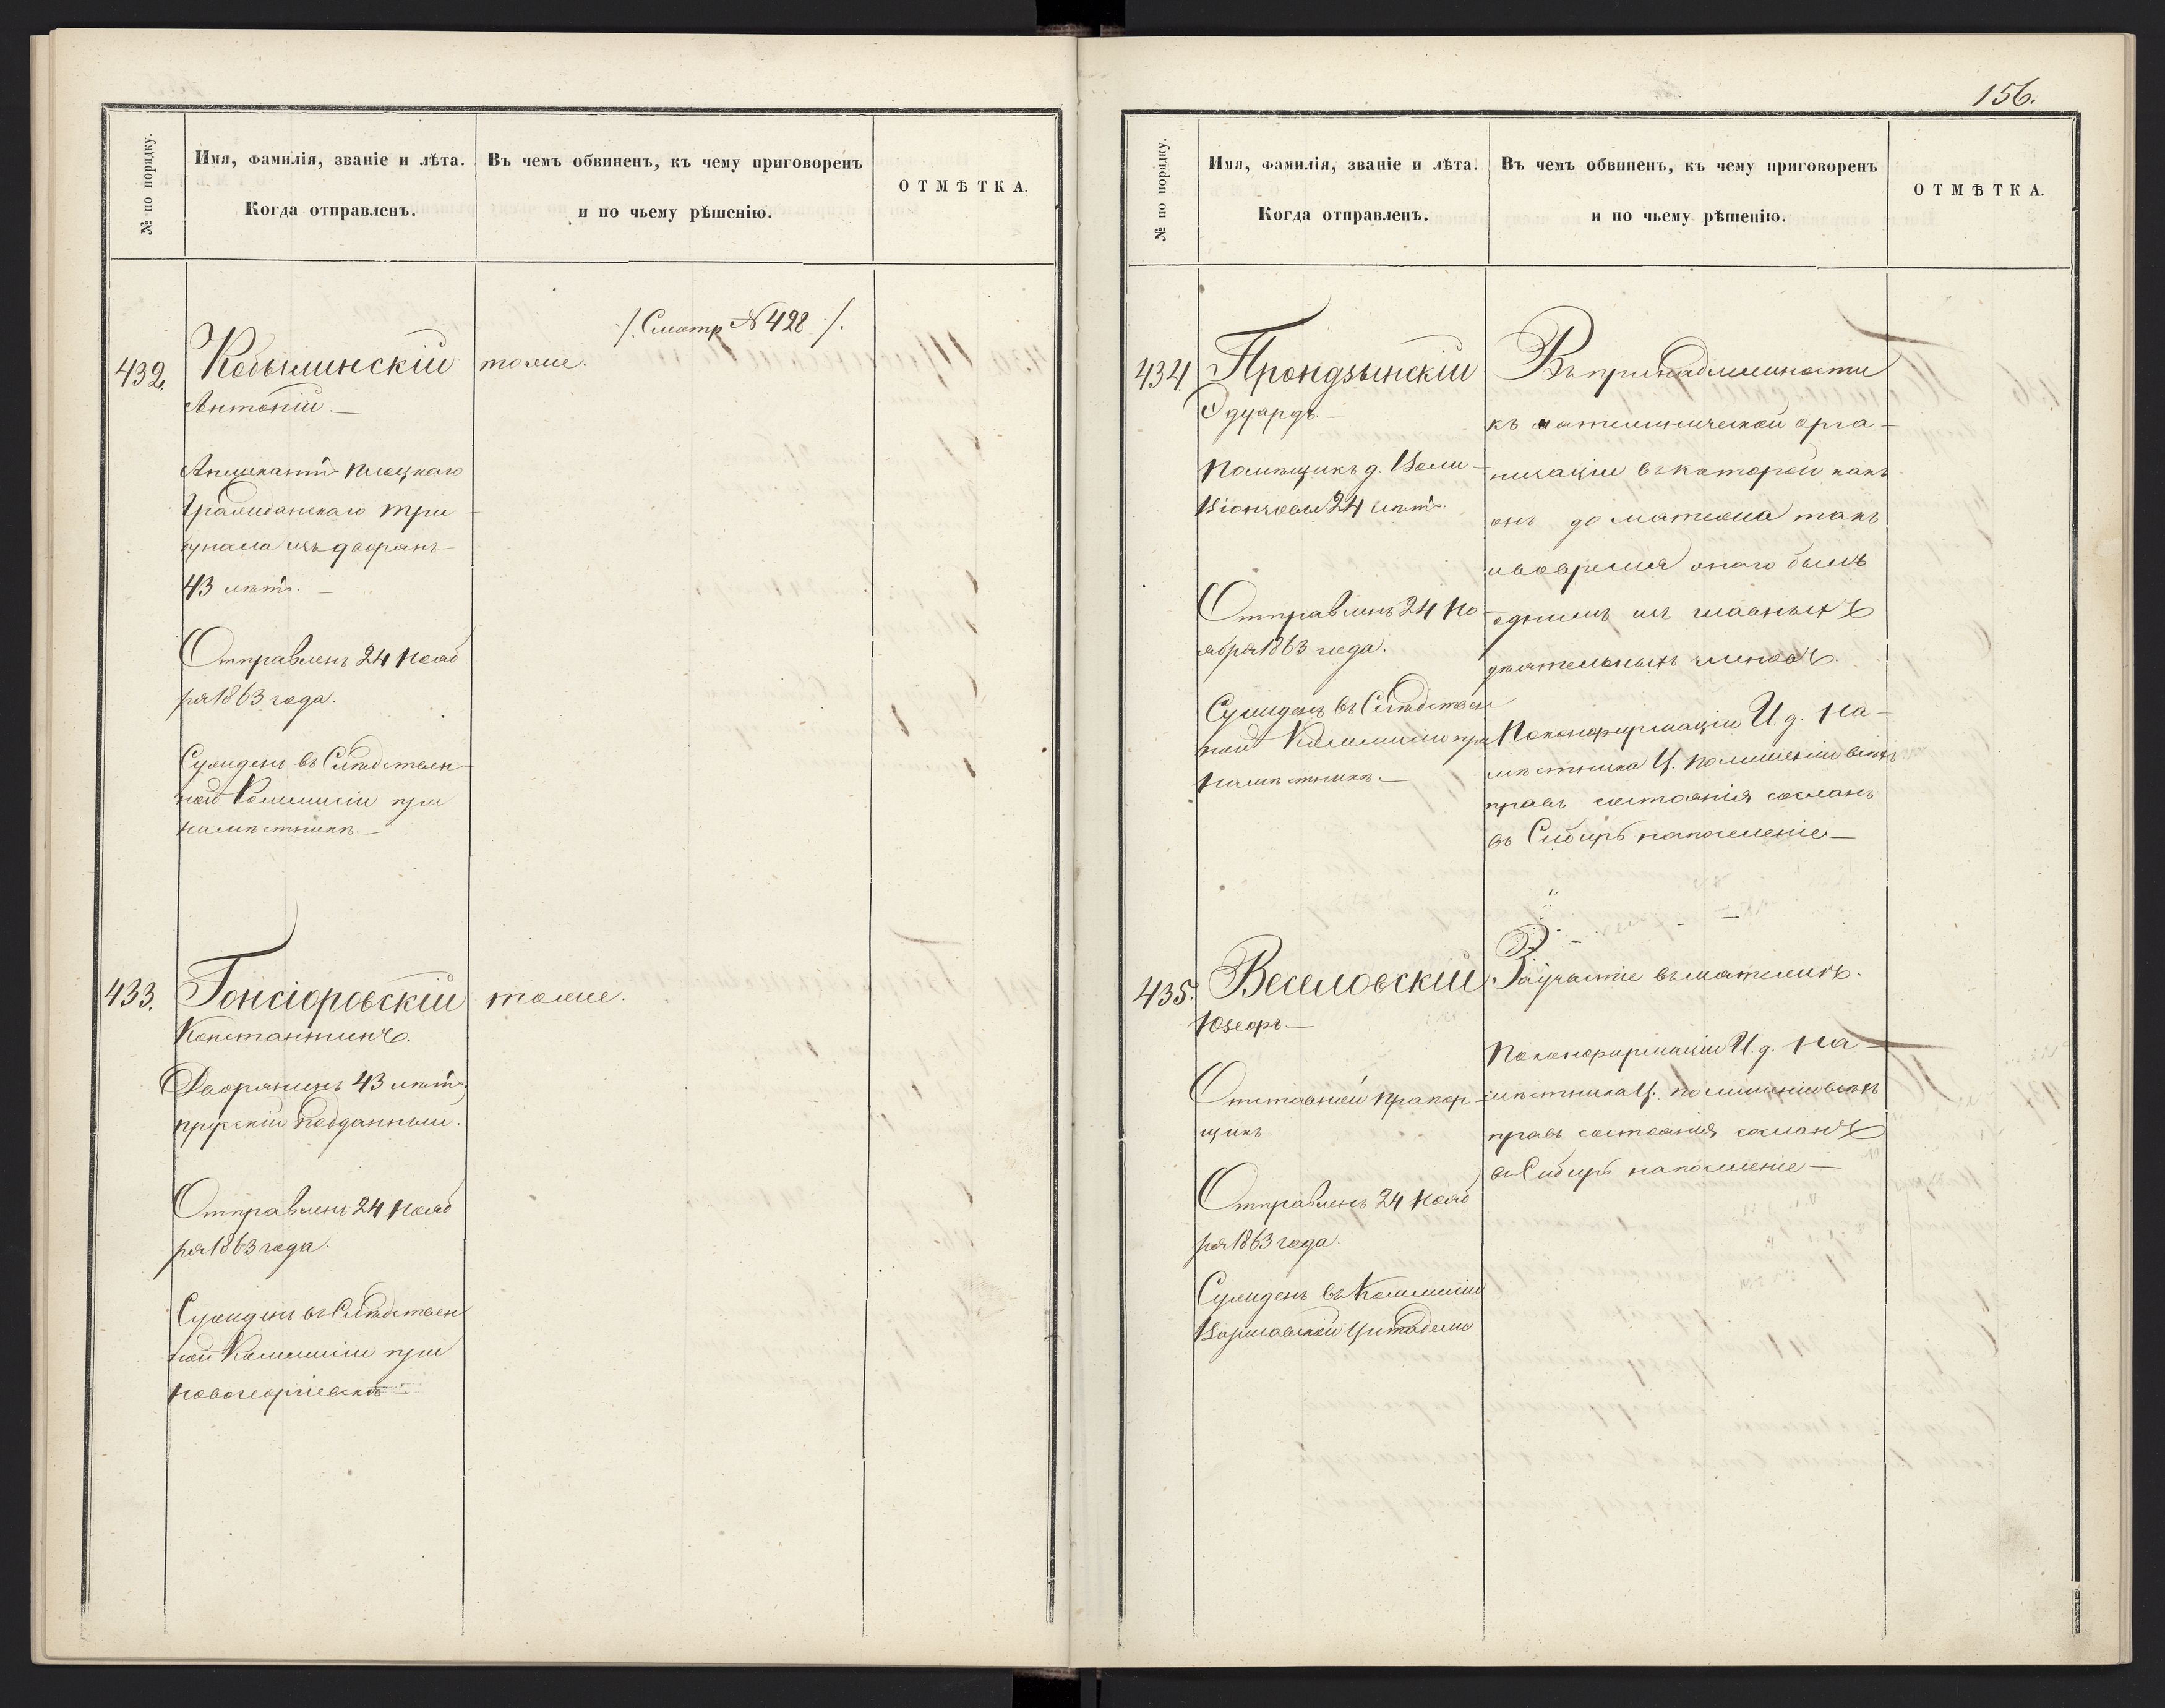 № по порядку.
Имя, фамилія, званіе и лѣта.
Когда отправленъ.
Въ чемъ обвиненъ, къ чему приговоренъ
и по чьему рѣшенію.
ОТМѢТКА.
/. Смотр № 428 /.
432.
Кобылинскій
Антоній. —
Апликантъ Плоцкаго
Гражданскаго Три-
бунала изъ дворянъ —
43 лѣтъ. —
Отправленъ 24 Нояб
ря 1863 года.
Сужденъ въ Слѣдствен-
ной Коммисіи при
Намѣстникѣ. —
тоже.
433.
Гонсіоровскій
Константинъ.
Дворянинъ 43 лѣтъ,
прусскій подданный.
Отправленъ 24 Нояб
ря 1863 года.
Сужденъ въ Слѣдствен
ной Коммисіи при
Новогеоргіевскѣ —
тоже.
156.
№ по порядку.
Имя, фамилія, званіе и лѣта.
Когда отправленъ.
Въ чемъ обвиненъ, къ чему приговоренъ
и по чьему рѣшенію.
ОТМѢТКА.
434.
Прондзынскій
Эдуардъ. —
Помѣщикъ д. Воли-
Віонзовы 24 лѣтъ.
Отправленъ 24 Но-
ября 1863 года.
Сужденъ въ Слѣдствен
ной Коммисіи при
Намѣстникѣ. —
Въ принадлежности
къ мятежнической орга-
низаціи въ которой какъ
онъ до мятежа такъ
и вовремя онаго былъ
однимъ изъ главныхъ
дѣятельныхъ членовъ.
По конфирмаціи И. д. На-
мѣстника Ц. по лишеніи всѣхъ
правъ состоянія сосланъ
въ Сибирь на поселеніе —
435.
Веселовскій
Юзефъ. —
Отставной Прапор-
щикъ
Отправленъ 24 Нояб
ря 1863 года.
Сужденъ въ Коммисіи
Варшавской Цитадели
За участіе въ мятежѣ.
По конфирмаціи И. д. На-
мѣстника Ц. по лишеніи всѣхъ
правъ состоянія сосланъ
въ Сибирь на поселеніе —